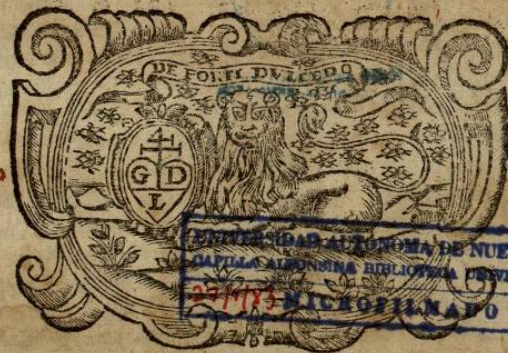 DE FORTI DVLCEDO
G D
L
UNIVERSIDAD AUTONOMA DE NUE
CAPILLA ALFONSINA BIBLIOTECA
MICROFILMADO